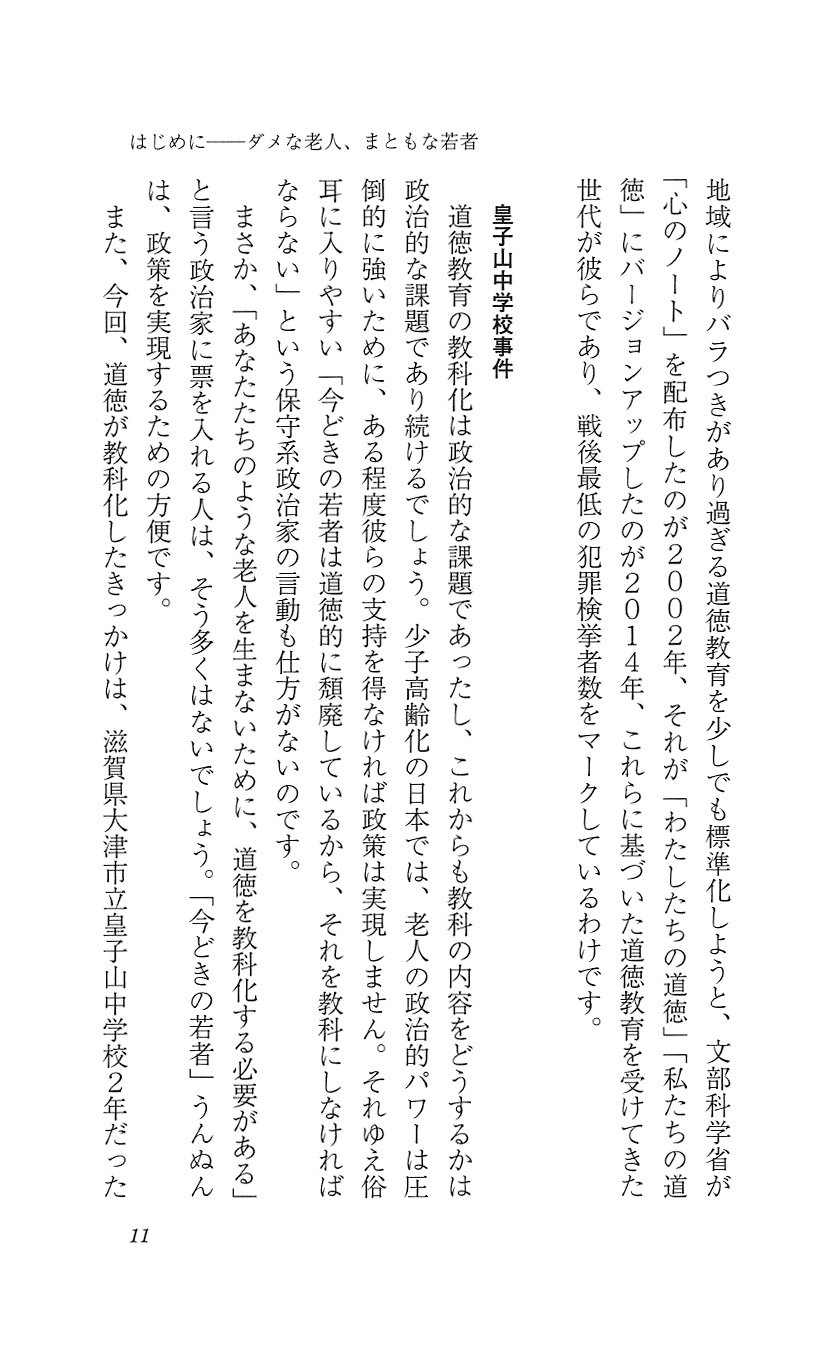 はじめに――ダメな老人、まともな若者
地域によりバラつきがあり過ぎる道徳教育を少しでも標準化しようと、文部科学省が
「心のノート」を配布したのが２００２年、それが「わたしたちの道徳」「私たちの道
徳」にバージョンアップしたのが２０１４年、これらに基づいた道徳教育を受けてきた
世代が彼らであり、戦後最低の犯罪検挙者数をマークしているわけです。
皇子山中学校事件
道徳教育の教科化は政治的な課題であったし、これからも教科の内容をどうするかは
政治的な課題であり続けるでしょう。少子高齢化の日本では、老人の政治的パワーは圧
倒的に強いために、ある程度彼らの支持を得なければ政策は実現しません。それゆえ俗
耳に入りやすい「今どきの若者は道徳的に頽廃しているから、それを教科にしなければ
ならない」という保守系政治家の言動も仕方がないのです。
まさか、「あなたたちのような老人を生まないために、道徳を教科化する必要がある」
と言う政治家に票を入れる人は、そう多くはないでしょう。「今どきの若者」うんぬん
は、政策を実現するための方便です。
また、今回、道徳が教科化したきっかけは、滋賀県大津市立皇子山中学校２年だった
11